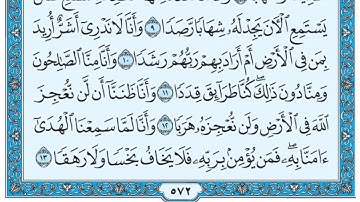 يَسْتَمِعِ ٱلْأٓنَ يَجِدْ لَهُۥ شِهَابًا رَّصَدًا ٩ وَأَنَّا لَا نَدْرِىٓ أَشَرٌّ أُرِيدَ
بِمَن فِى ٱلْأَرْضِ أَمْ أَرَادَ بِهِمْ رَبُّهُمْ رَشَدًا ١٠ وَأَنَّا مِنَّا ٱلصَّـٰلِحُونَ
وَمِنَّا دُونَ ذَٰلِكَ ۖ كُنَّا طَرَآئِقَ قِدَدًا ١١ وَأَنَّا ظَنَنَّآ أَن لَّن نُّعْجِزَ
ٱللَّهَ فِى ٱلْأَرْضِ وَلَن نُّعْجِزَهُۥ هَرَبًا ١٢ وَأَنَّا لَمَّا سَمِعْنَا ٱلْهُدَىٰٓ
ءَامَنَّا بِهِۦ ۖ فَمَن يُؤْمِنۢ بِرَبِّهِۦ فَلَا يَخَافُ بَخْسًا وَلَا رَهَقًا ١٣
٥٧٢